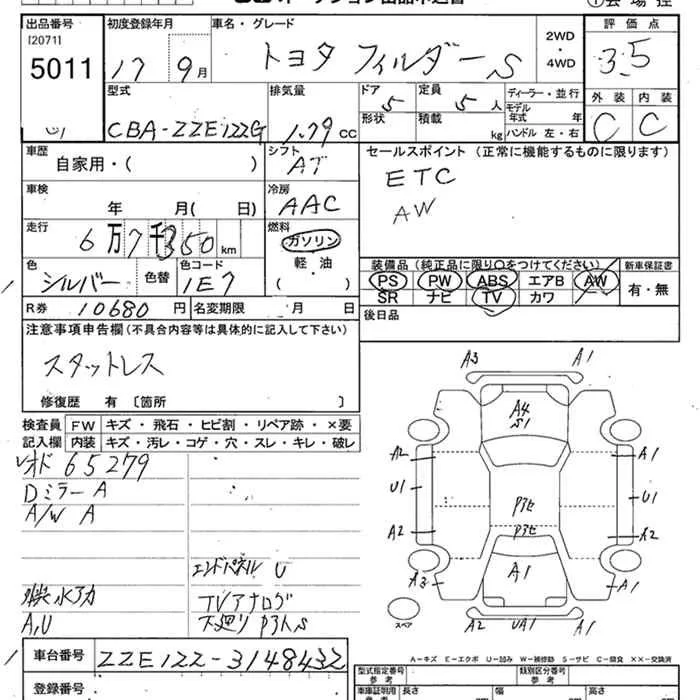 出品番号 初度登録年月 車名・グレード 評価点
I20711
5011 17 9月 トヨタ フィルダー S 2WD・4WD 3.5
型式 排気量 ドア 定員 ディーラー・並行 外装 内装
CBA-ZZE122G 1.79 CC 5 5人 モデル年式 年 C C
形状 積載 kg ハンドル 左・右
車歴 シフト セールスポイント (正常に機能するものに限ります)
自家用・( ) AT ETC
車検 冷房 AW
年 月( 日) AAC
走行 燃料
6万7千350km ガソリン
軽・油
色 色替 色コード ( ) 装備品 (純正品に限り○をつけてください) 新車保証書
シルバー 1E7 PS PW ABS エアB AW 有・無
SR ナビ TV カワ
R券 10680円 名変期限 月 日 後日品
注意事項申告欄 (不具合内容等は具体的に記入して下さい)
スタットレス
修復歴 有 〔箇所 〕
検査員 FW キズ・飛石・ヒビ割・リペア跡・×要
記入欄 内装 キズ・汚レ・コゲ・穴・スレ・キレ・破レ
65279
Dミラー A
A/W A
エンドパネル U
TVアナログ
A,U 下廻り P3 S
A3 A1
A4
S1
A2 A1
U1 U1
P3セ
A2 P3セ A2
A3 A1 A1
スペア A2 UA1 A1
A-キズ E-エクボ U-凹み W-補修跡 S-サビ C-腐食 ××-交換済
車台番号 ZZE122-3148432
型式指定番号 参考 類別区分番号 参考
登録番号 車庫証明用 参考 長さ 幅 高さ